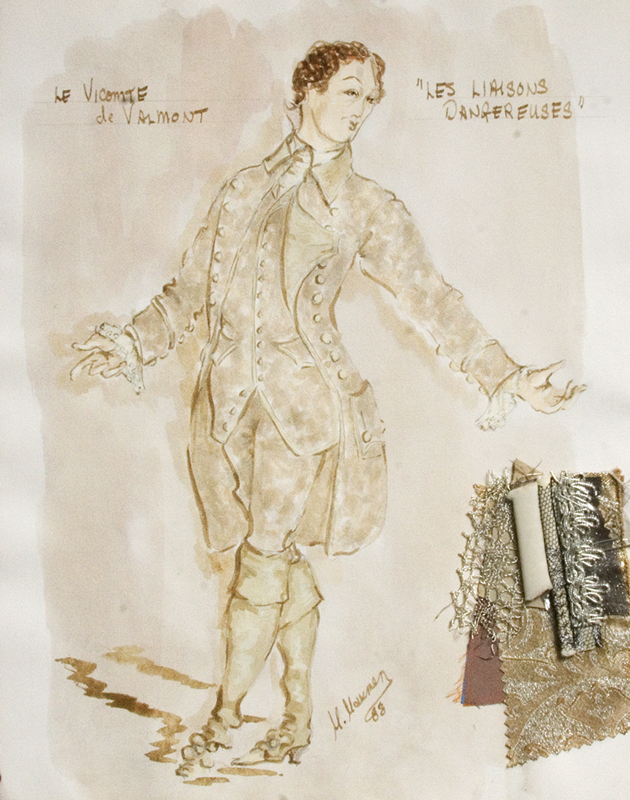 LE VICOMTE
de VALMONT
"LES LIAISONS
DANGEREUSES"